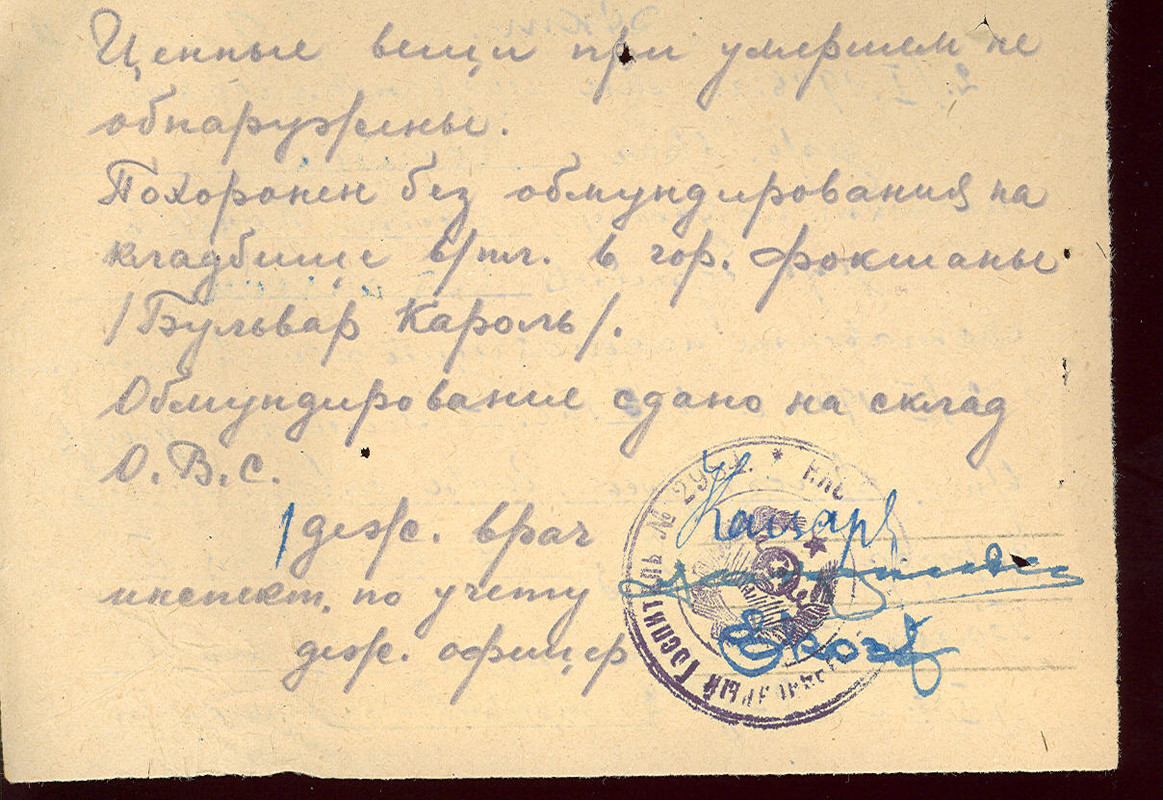 Ценные вещи при умершем не
обнаружены.
Похоронен без обмундирования на
кладбище в/пл. в гор. Фокшаны
/Бульвар Кароль/.
Обмундирование сдано на склад
О.В.С.
деж. врач
инспект. по учету
деж. офицер
госпиталь №